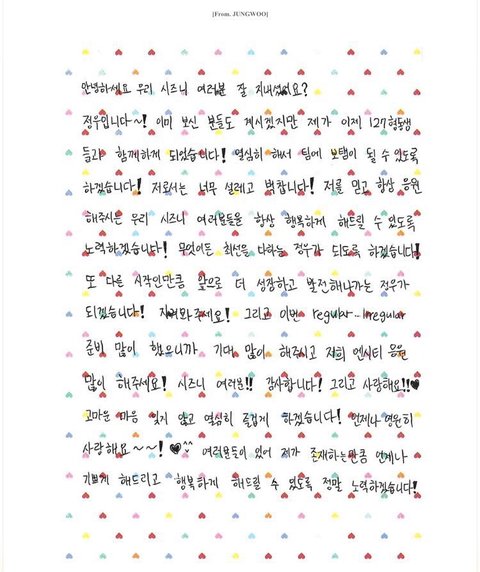 [From. JUNGWOO]
안녕하세요 우리 시즈니 여러분 잘 지내셨어요?
정우입니다~! 이미 보신 분들도 계시겠지만 제가 이제 127 형동생
들과 함께하게 되었습니다! 열심히 해서 팀에 보탬이 될 수 있도록
하겠습니다! 저로서는 너무 설레고 벅찹니다! 저를 믿고 항상 응원
해주시는 우리 시즈니 여러분들을 항상 행복하게 해드릴 수 있도록
노력하겠습니다! 무엇이든 최선을 다하는 정우가 되도록 하겠습니다!
또 다른 시작인만큼 앞으로 더 성장하고 발전해나가는 정우가
되겠습니다! 지켜봐주세요! 그리고 이번 regular-irregular
준비 많이 했으니까 기대 많이 해주시고 저희 엔시티 응원
많이 해주세요! 시즈니 여러분!! 감사합니다! 그리고 사랑해요!!♥
고마운 마음 잊지 않고 열심히 즐겁게 하겠습니다! 언제나 영원히
사랑해요~~! ♥^^ 여러분들이 있어 제가 존재하는만큼 언제나
기쁘게 해드리고 행복하게 해드릴 수 있도록 정말 노력하겠습니다!